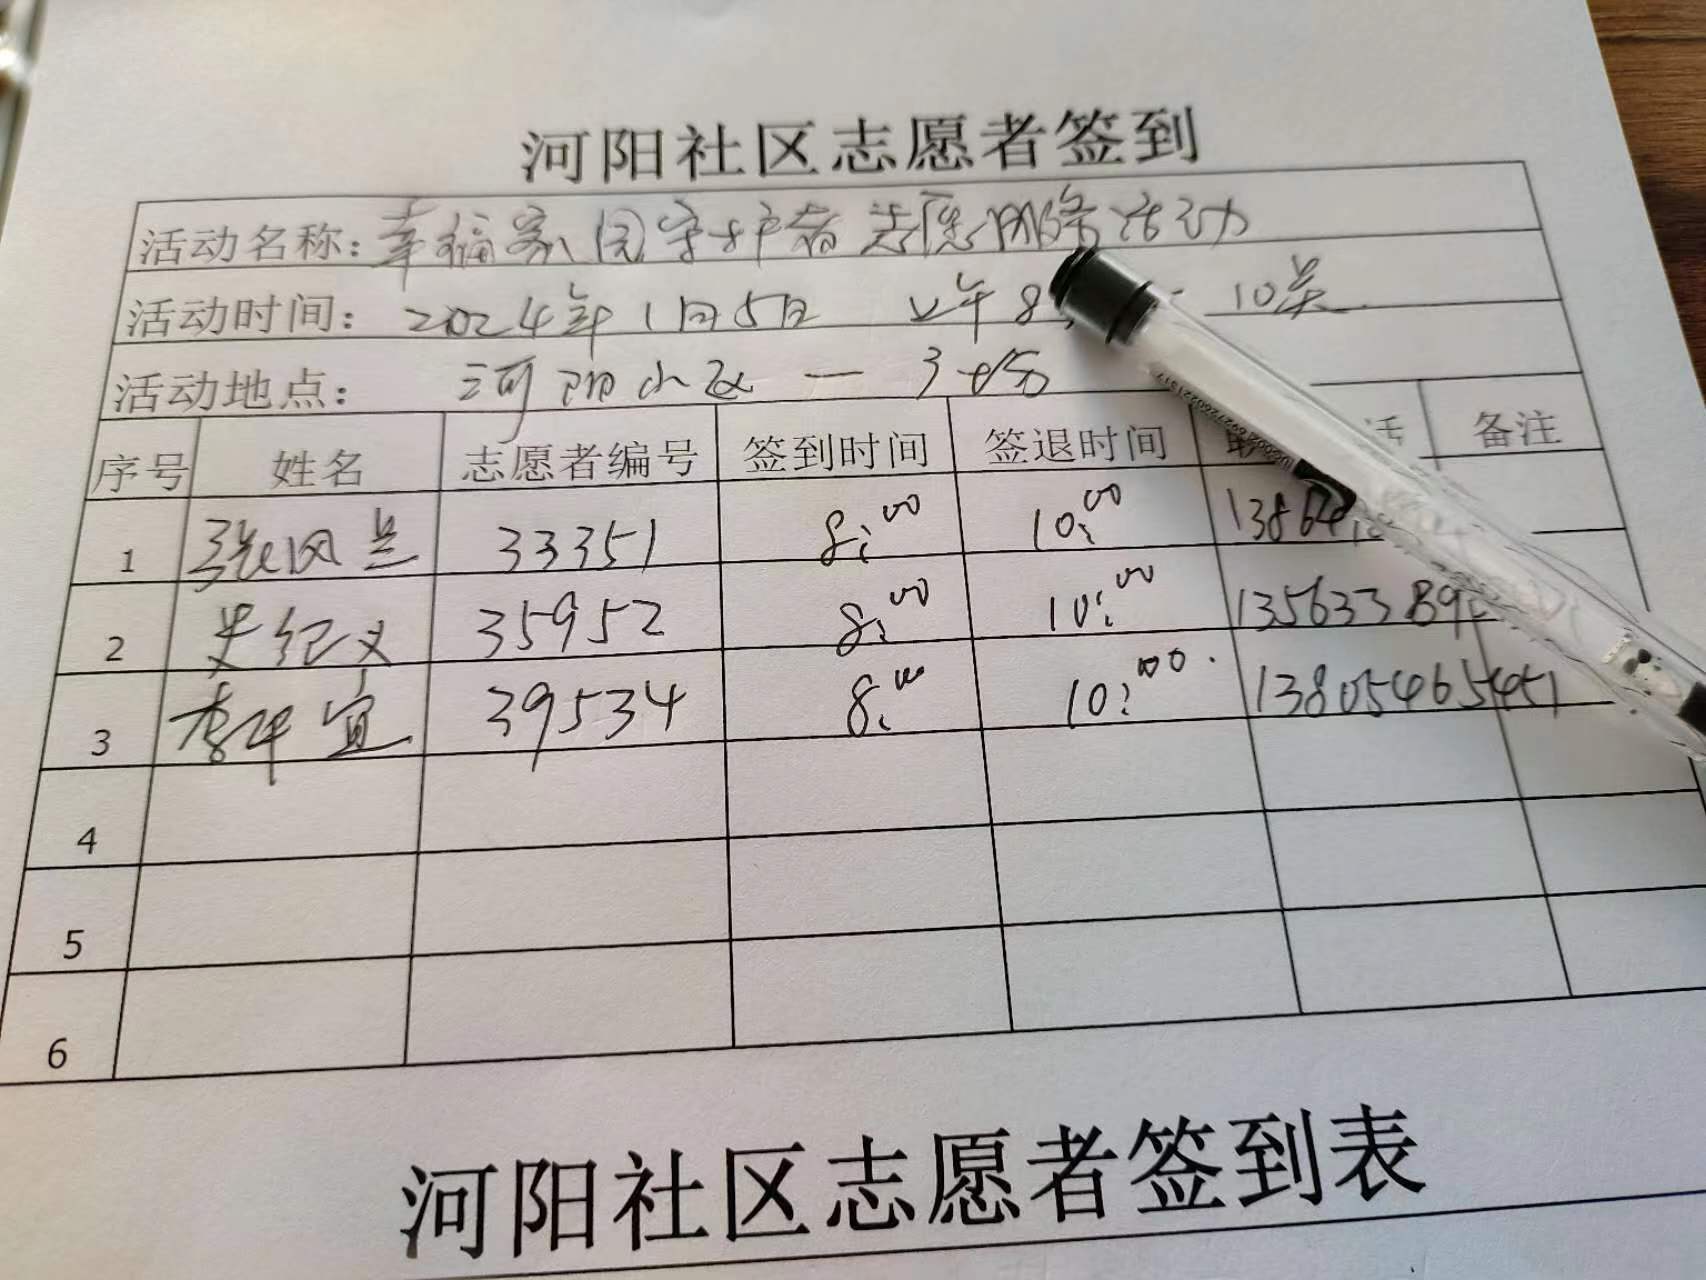 河阳社区志愿者签到
活动名称：幸福家园守护者志愿服务活动
活动时间：2024年1月5日 上午8 - 10点
活动地点：河阳小区 — 3
序号 姓名 志愿者编号 签到时间 签退时间 话 备注
1 张风兰 33351 8:00 10:00 13864
2 史纪义 35952 8:00 10:00 135633892
3 李华宜 39534 8:00 10:00 13805465451
4
5
6
河阳社区志愿者签到表